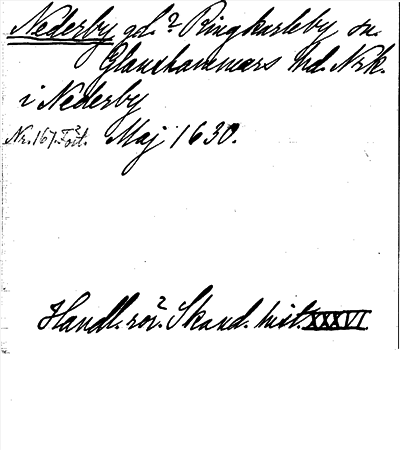 Nederby gd? Ringkarleby sn
Glanshammars hd. Nrk.
i Nederby
Nr. 167. Fört. Maj 1630.
Handl. rör. Skand. hist. XXXVI